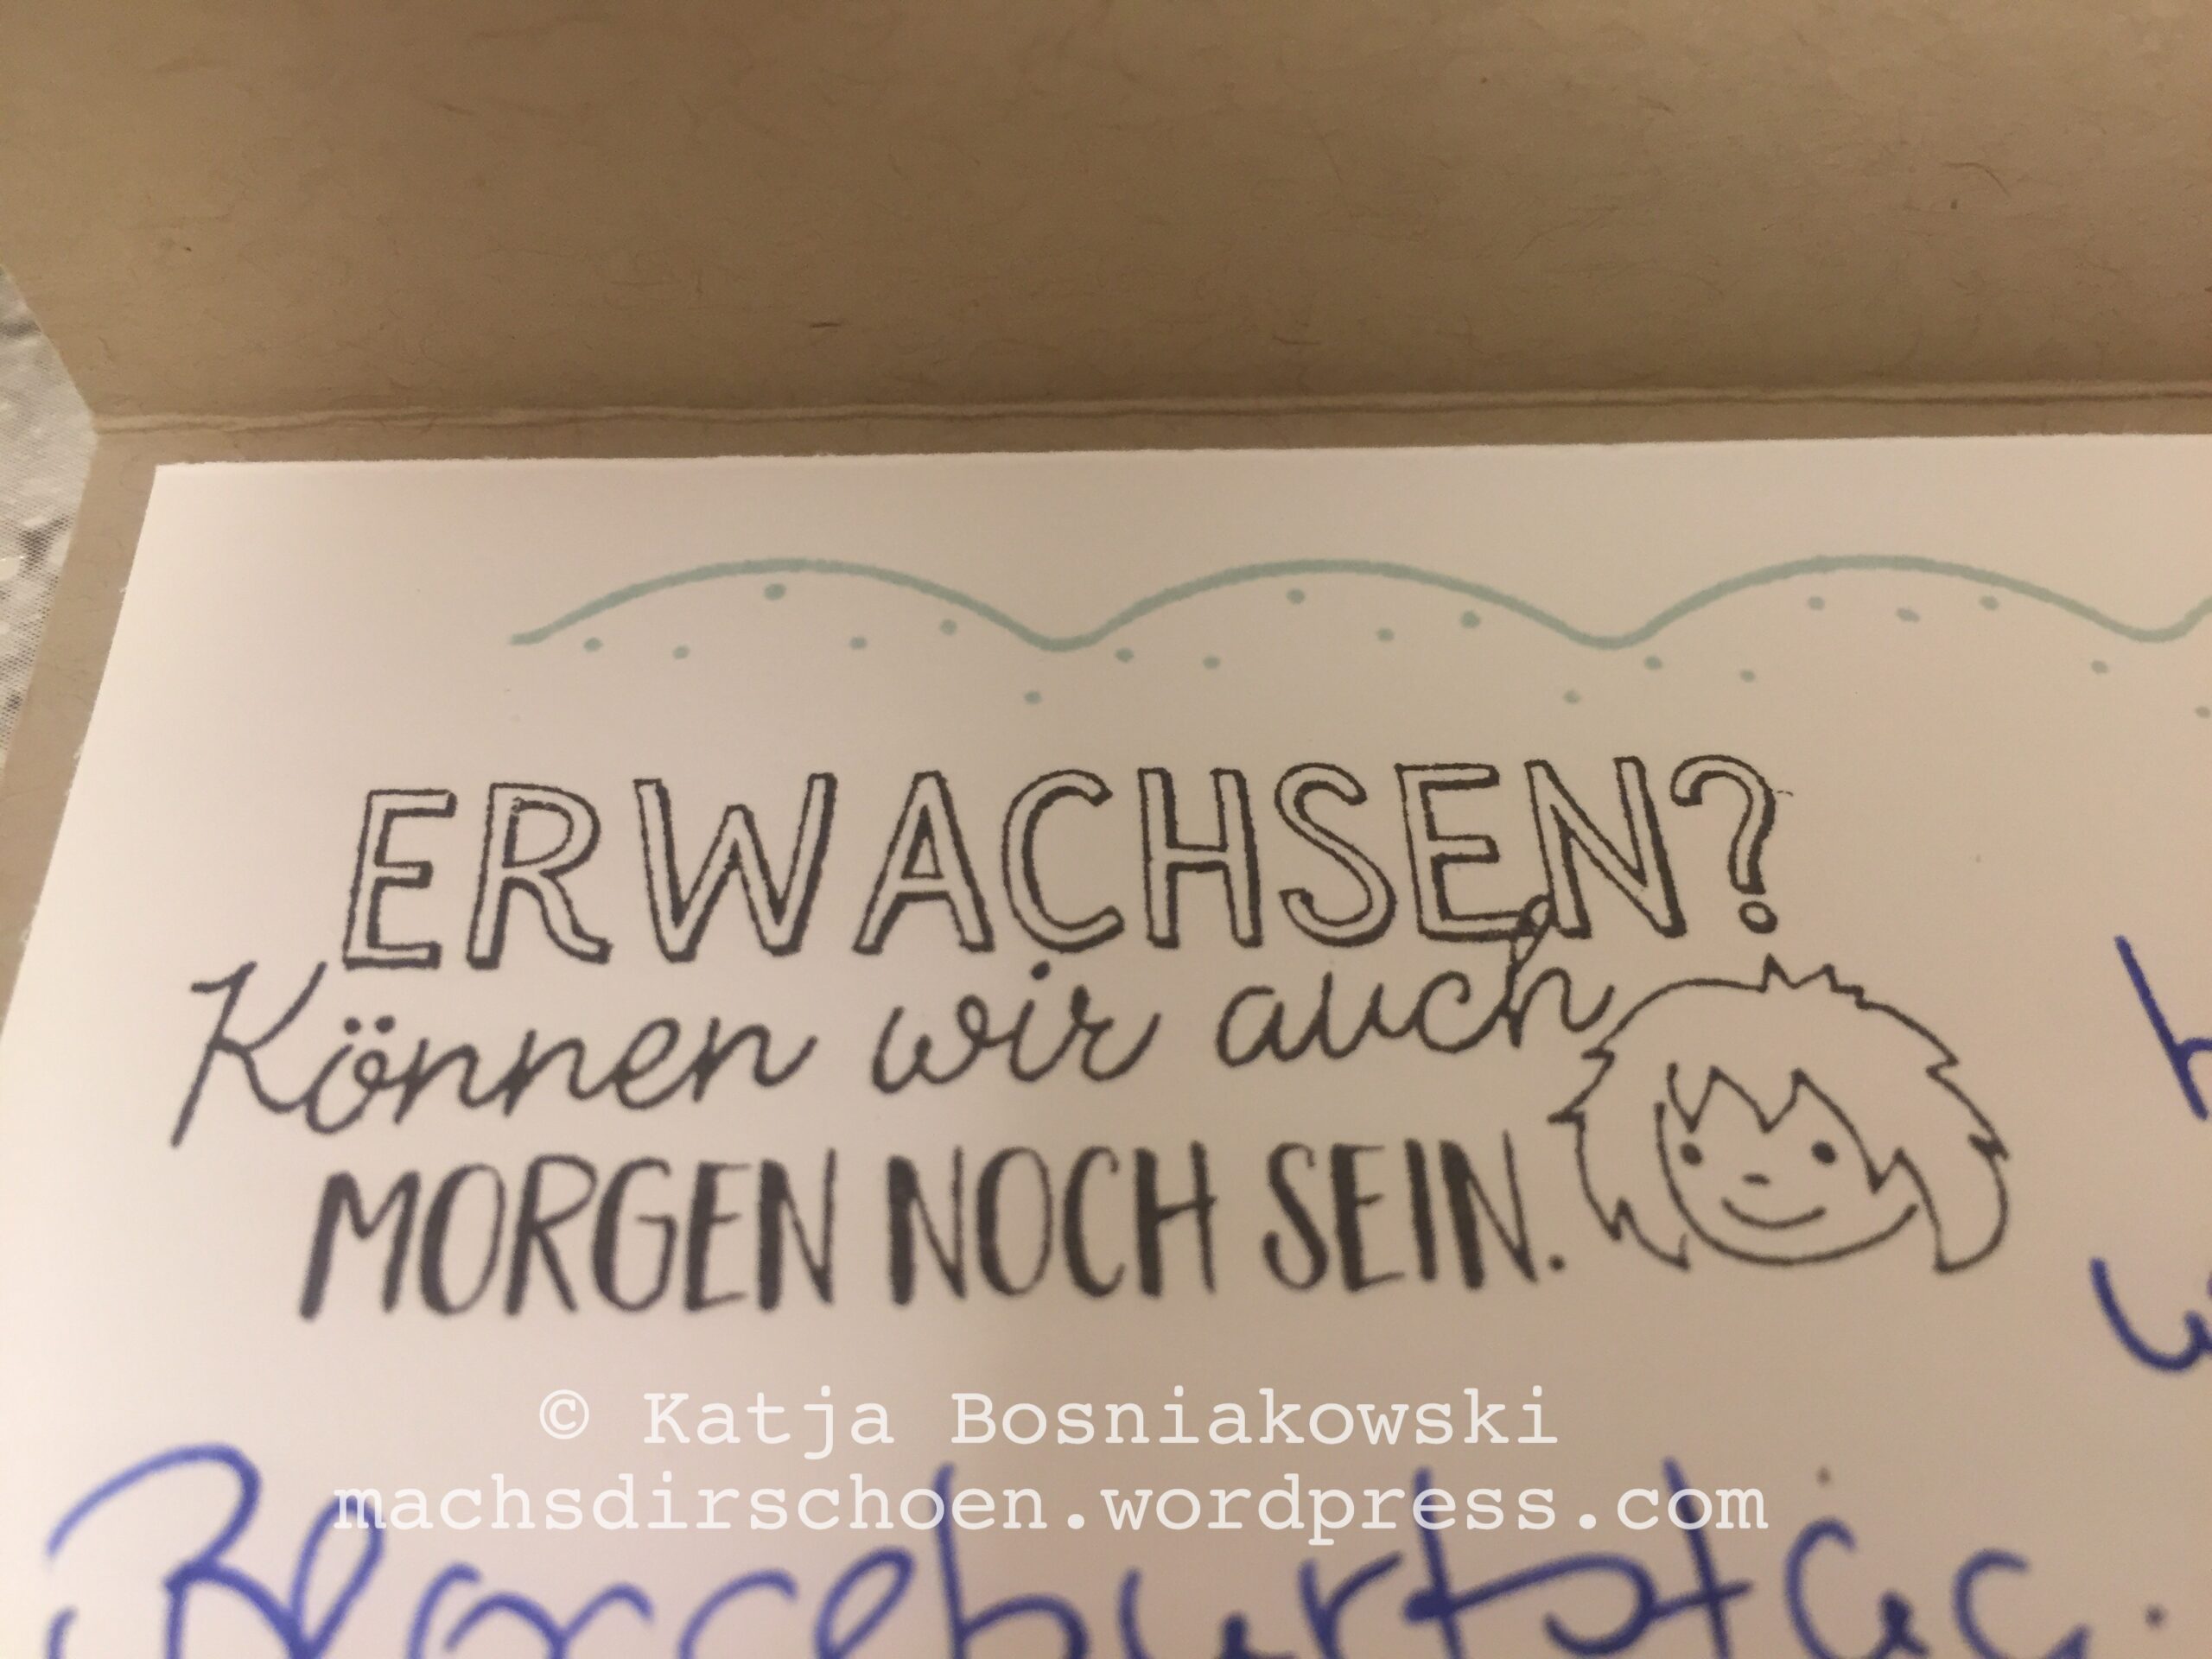 ERWACHSEN?
Können wir auch
MORGEN NOCH SEIN.
© Katja Bosniakowski
machsdirschoen.wordpress.com